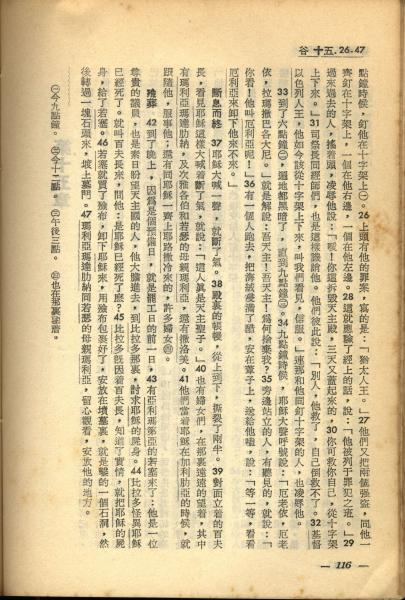 谷 十五．26-47
點鐘時候，釘他在十字架上㊀。26上頭有他的罪案，寫的是：「猶太人王。」27他們又把兩個强盜，同他一
齊釘在十字架上，一個在他右邊，一個在他左邊。28這就應驗了經上的話，說：「他被列于罪犯之班。」29
過來過去的人，搖着頭，凌辱他說：「啦！你這拆毀天主殿，三天又蓋起來的，30你可救你自己，從十字架
上下來。」31司祭長同經師們，也是這樣譏誚他。他們彼此說：「別人，他救了，自己倒救不了。32基督
以色列人王，他如今該從十字架上下來，叫我們看見，信服。」連那和他同釘十字架的人，也凌辱他。
33到了六點鐘㊁，遍地都黑暗了，直到九點鐘㊂。34九點鐘時候，耶穌大聲呼號說：「厄老依，厄老
依，拉瑪撒巴各大尼。」就是解說：吾天主！吾天主！爲何捨棄我？35旁邊站立的人，有聽見的，就說：「
你看！他叫厄利亞呢！」36有一個人跑去，把海絨浸滿了醋，安在葦子上，送給他嗑，說：「等一等，看看
厄利亞來卸下他來不來。」
斷息而終 37耶穌大喊一聲，就斷了氣。38殿裏的帳幔，從上到下，撕裂了兩半。39對面立着的百夫
長，看見耶穌這樣大喊着斷了氣，就說：「這人眞是天主聖子。」40也有婦女們，在那裏遠遠的望着，其中
有瑪利亞瑪達肋納，及次雅各伯和若瑟的母親瑪利亞，還有撒洛美。41他們當着耶穌在加利肋亞的時候，就
跟隨他，服事他；還有同耶穌一齊上耶路撒冷來的，許多婦女㊃。
殮葬 42到了晚上，因爲是個預備日，就是罷工日的前一日，43有亞利瑪弟亞的若瑟來了：他是一位
尊貴的議員，也是素日盼望天主國的人，他大膽進去，到比拉多那裏，討求耶穌的屍身。44比拉多怪異耶穌
已經死了。就叫百夫長來，問他：是耶穌已經死了麽？45比拉多旣因着百夫長，知道了實情，就把耶穌的屍
身，給了若瑟。46若瑟就買了殮布，卸下耶穌來，用殮布包裹好了，安放在墳墓裏，就是鑿的一個石洞，然
後轉過一塊石頭來，堵上墓門。47瑪利亞瑪達肋納同若瑟的母親瑪利亞，留心觀看，安放他的地方。
㊀今九點鐘。 ㊁今十二點。 ㊂午後三點。 ㊃也在那裏遠揩。
— 116 —